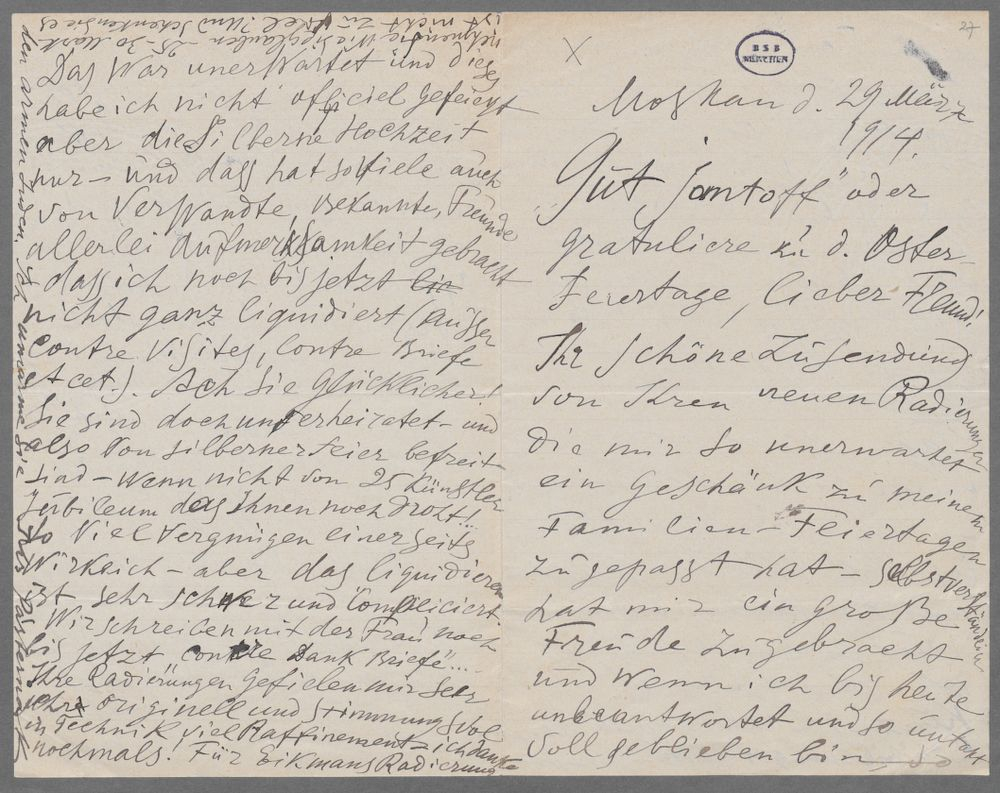 27
X
BSB
MÜNCHEN
Moskau d. 29 März
1914.
„Gut jomtoff" oder
gratuliere zu d. Oster-
Feiertage, lieber Freund!
Ihr schöne Zusendung
von Ihren neuen Radierungen
die mir so unerwartet
ein Geschänk zu meinem
Familien-Feiertagen
zugepasst hat - selbstverständlich
hat mir ein große
Freude zugebracht
und wenn ich bis heute
unbeantwortet und so untakt
voll geblieben bin, so
Das war unerwartet und dies
habe ich nicht officiel gefeiert
aber die Silberne Hochzeit
nur - und dass hat so viele auch
von Verwandte, Bekannte, Freunde
allerlei Aufmerksamkeit gebracht
dass ich noch bis jetzt
nicht ganz liquidiert (ausser
Contre Visites, Contre Briefe
et cet.). Ach Sie Glücklicher!
Sie sind doch unverheiratet - und
also von silberner Feier befreit
sind - wenn nicht von 25 Künstler
jubileum das Ihnen noch droht!..
So viel Vergnügen einerseits
wirklich - aber das liquidieren
ist sehr schwer und compliciert.
Wir schreiben mit der Frau noch
bis jetzt contre Dank Briefe"...
Ihre Radierungen gefielen mir sehr
sehr originell und stimmungsvol
in Technik viel Raffinement - ich danke
nochmals! Für Eikmans Radierung
nehmen Sie wie Sie glauben - 25-30 Mark
ist nicht zu viel? Und schenken Sie es
den armen Juden. Ich umarme Sie
Ihr Pasternak